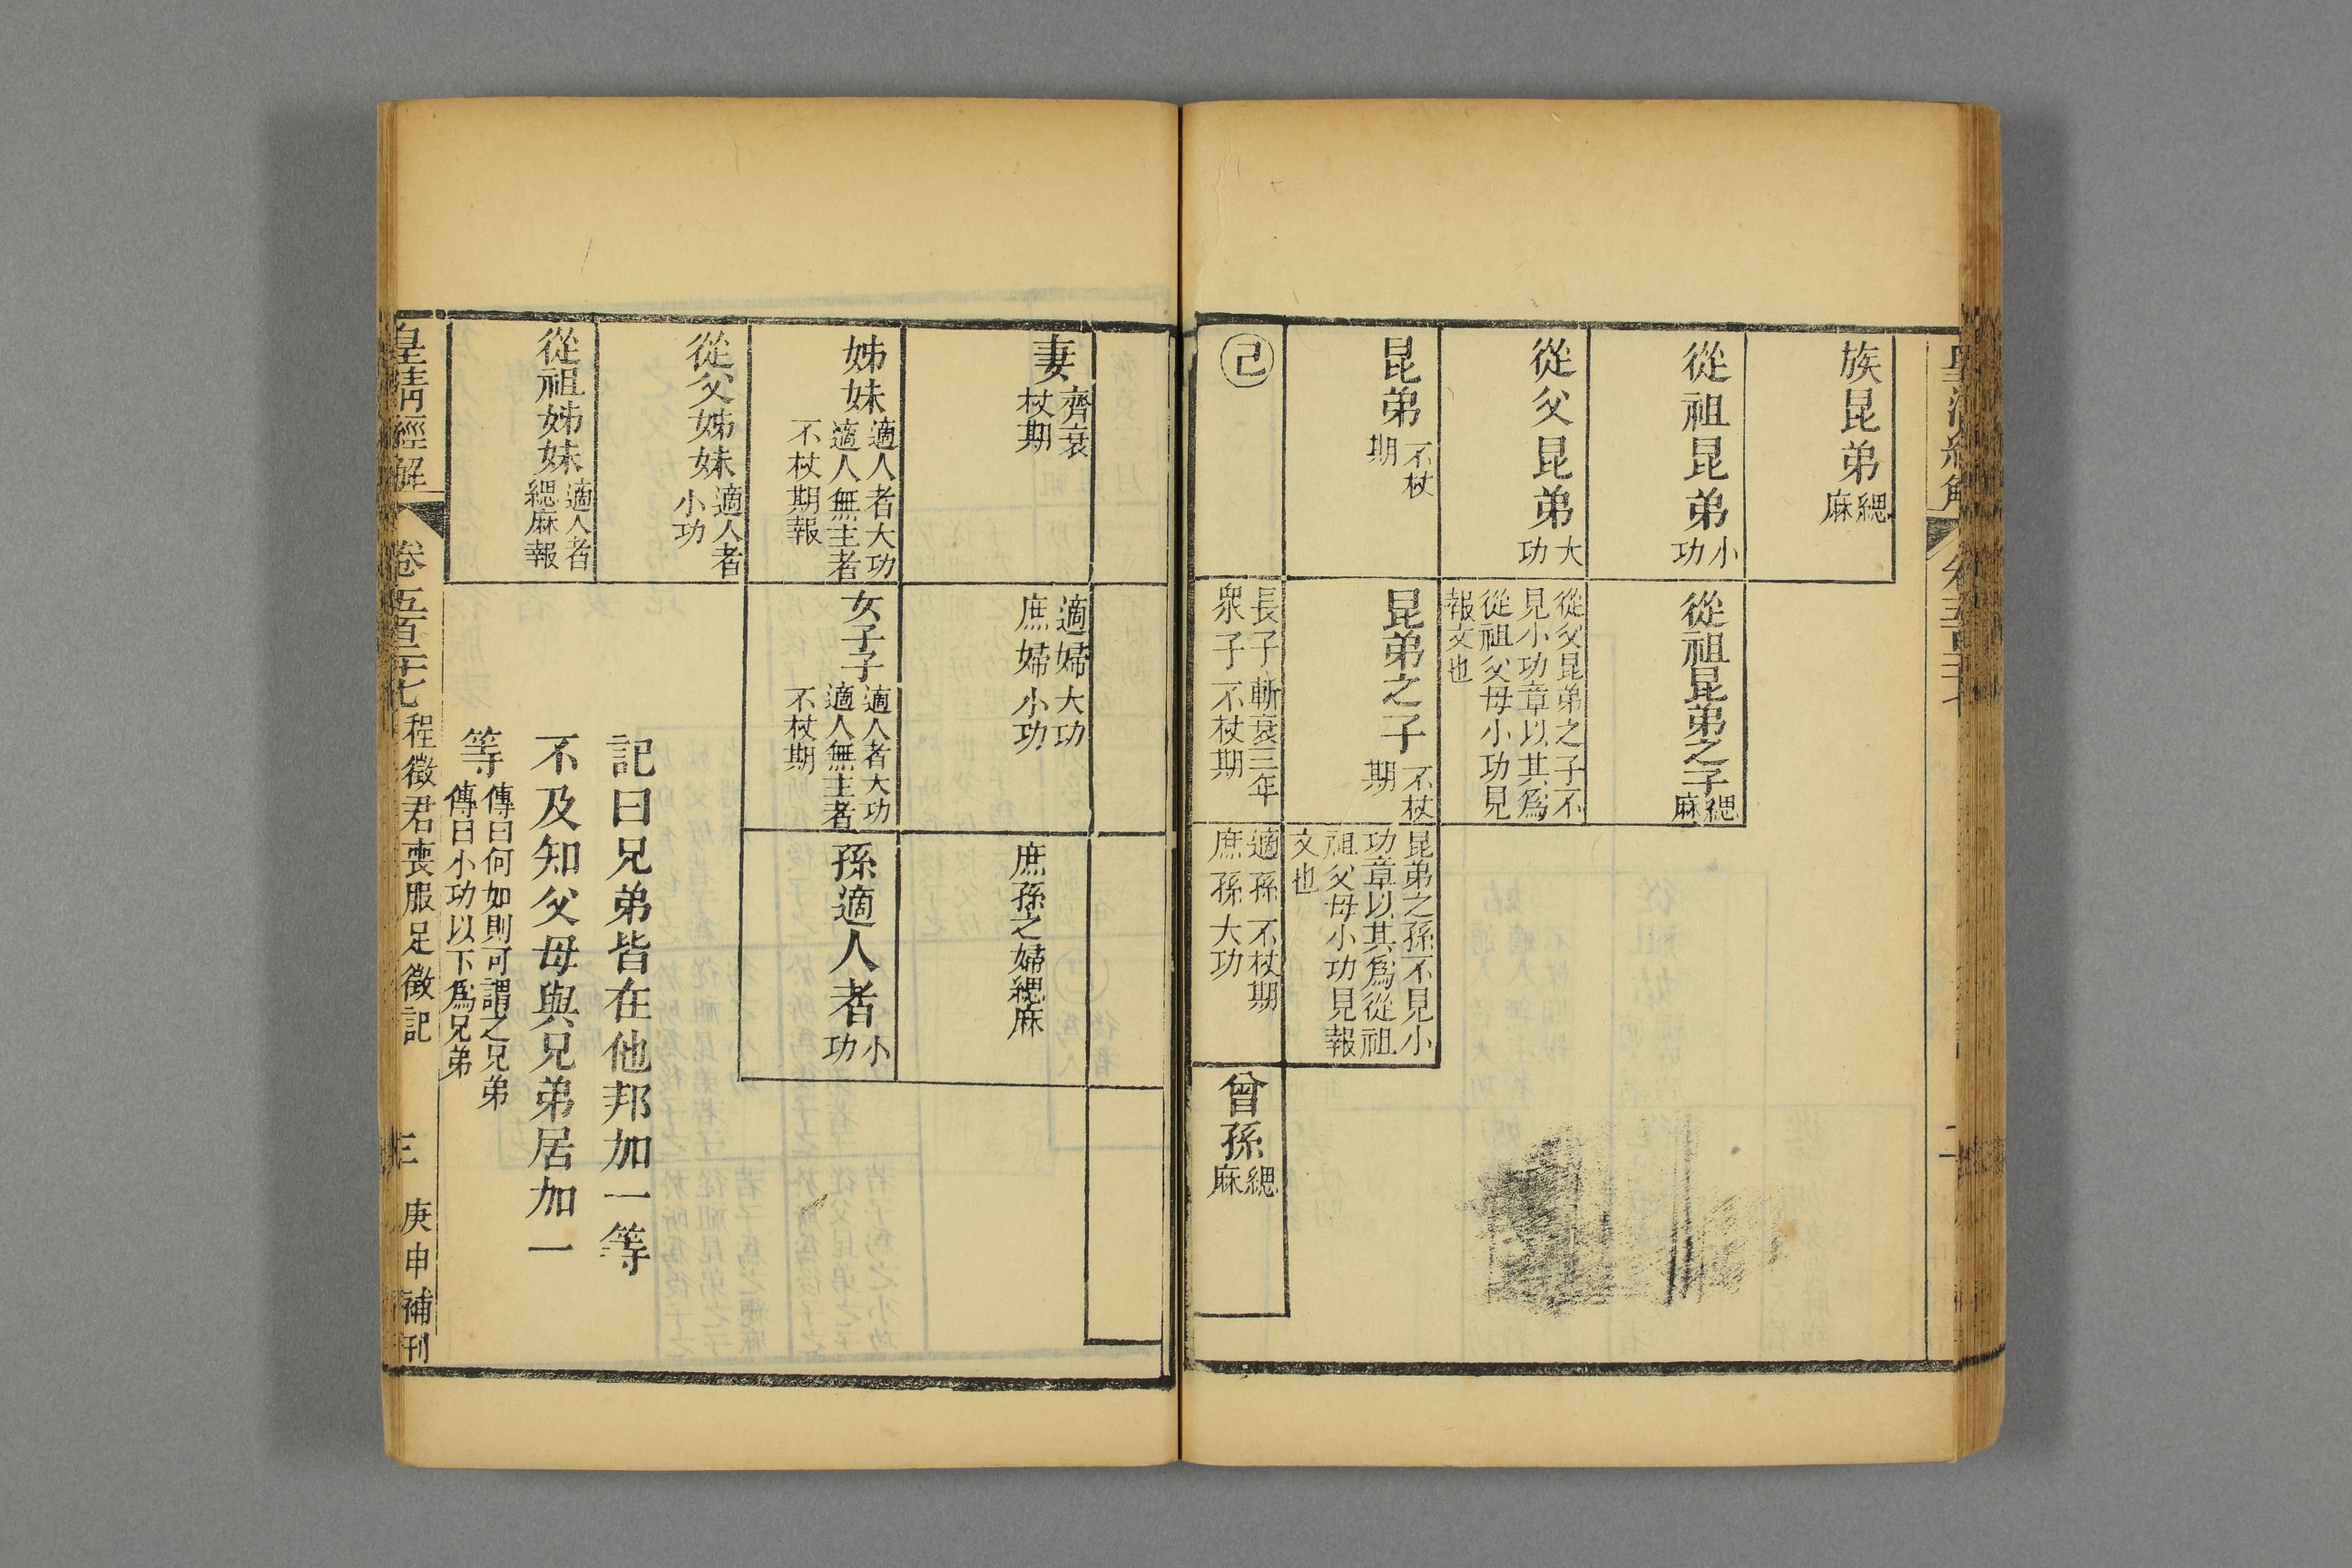 族昆弟緦麻
從祖昆弟小功
從祖昆弟之子緦麻
從父昆弟大功
從父昆弟之子不
見小功章以其爲
從祖父母小功見
報文也
昆弟不杖期
昆弟之子不杖期
昆弟之孫不見小
功章以其爲從祖
祖父母小功見報
文也
己
長子斬衰三年
衆子不杖期
適孫不杖期
庶孫大功
曾孫緦麻
妻齊衰杖期
適婦大功
庶婦小功
庶孫之婦緦麻
姊妹適人者大功
適人無主者
不杖期報
女子子適人者大功
適人無主者
不杖期
孫適人者小功
從父姊妹適人者
小功
從祖姊妹適人者
緦麻報
記曰兄弟皆在他邦加一等
不及知父母與兄弟居加一
等傳曰何如則可謂之兄弟
傳曰小功以下爲兄弟
皇清經解
卷五百二十七
程徵君喪服足徵記
三
庚申補刊